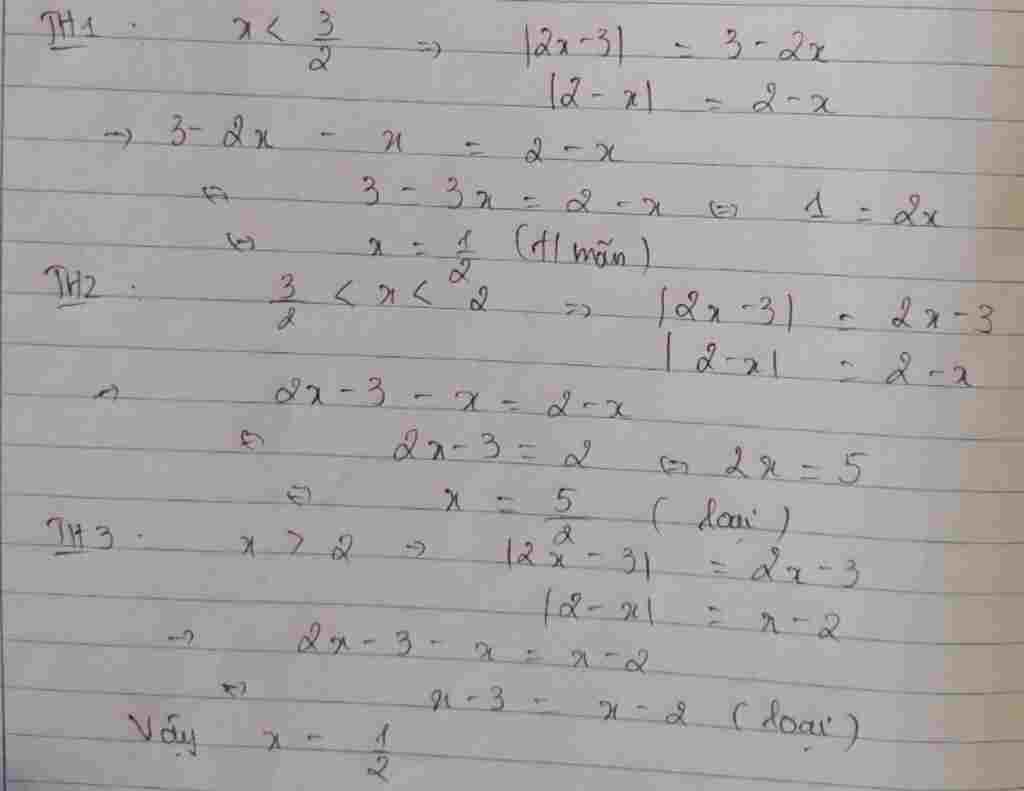 TH1 : x < 3/2 => |2x-3| = 3-2x
|2-x| = 2-x
→ 3-2x - x = 2-x
⇔ 3-3x = 2-x ⇔ 1 = 2x
⇔ x = 1/2 (t/mãn)
TH2 : 3/2 < x < 2 => |2x-3| = 2x-3
|2-x| = 2-x
→ 2x-3-x = 2-x
⇔ 2x-3 = 2 ⇔ 2x = 5
⇔ x = 5/2 (loại)
TH3 : x > 2 → |2x-3| = 2x-3
|2-x| = x-2
→ 2x-3-x = x-2
⇔ x-3 = x-2 (loại)
Vậy x = 1/2